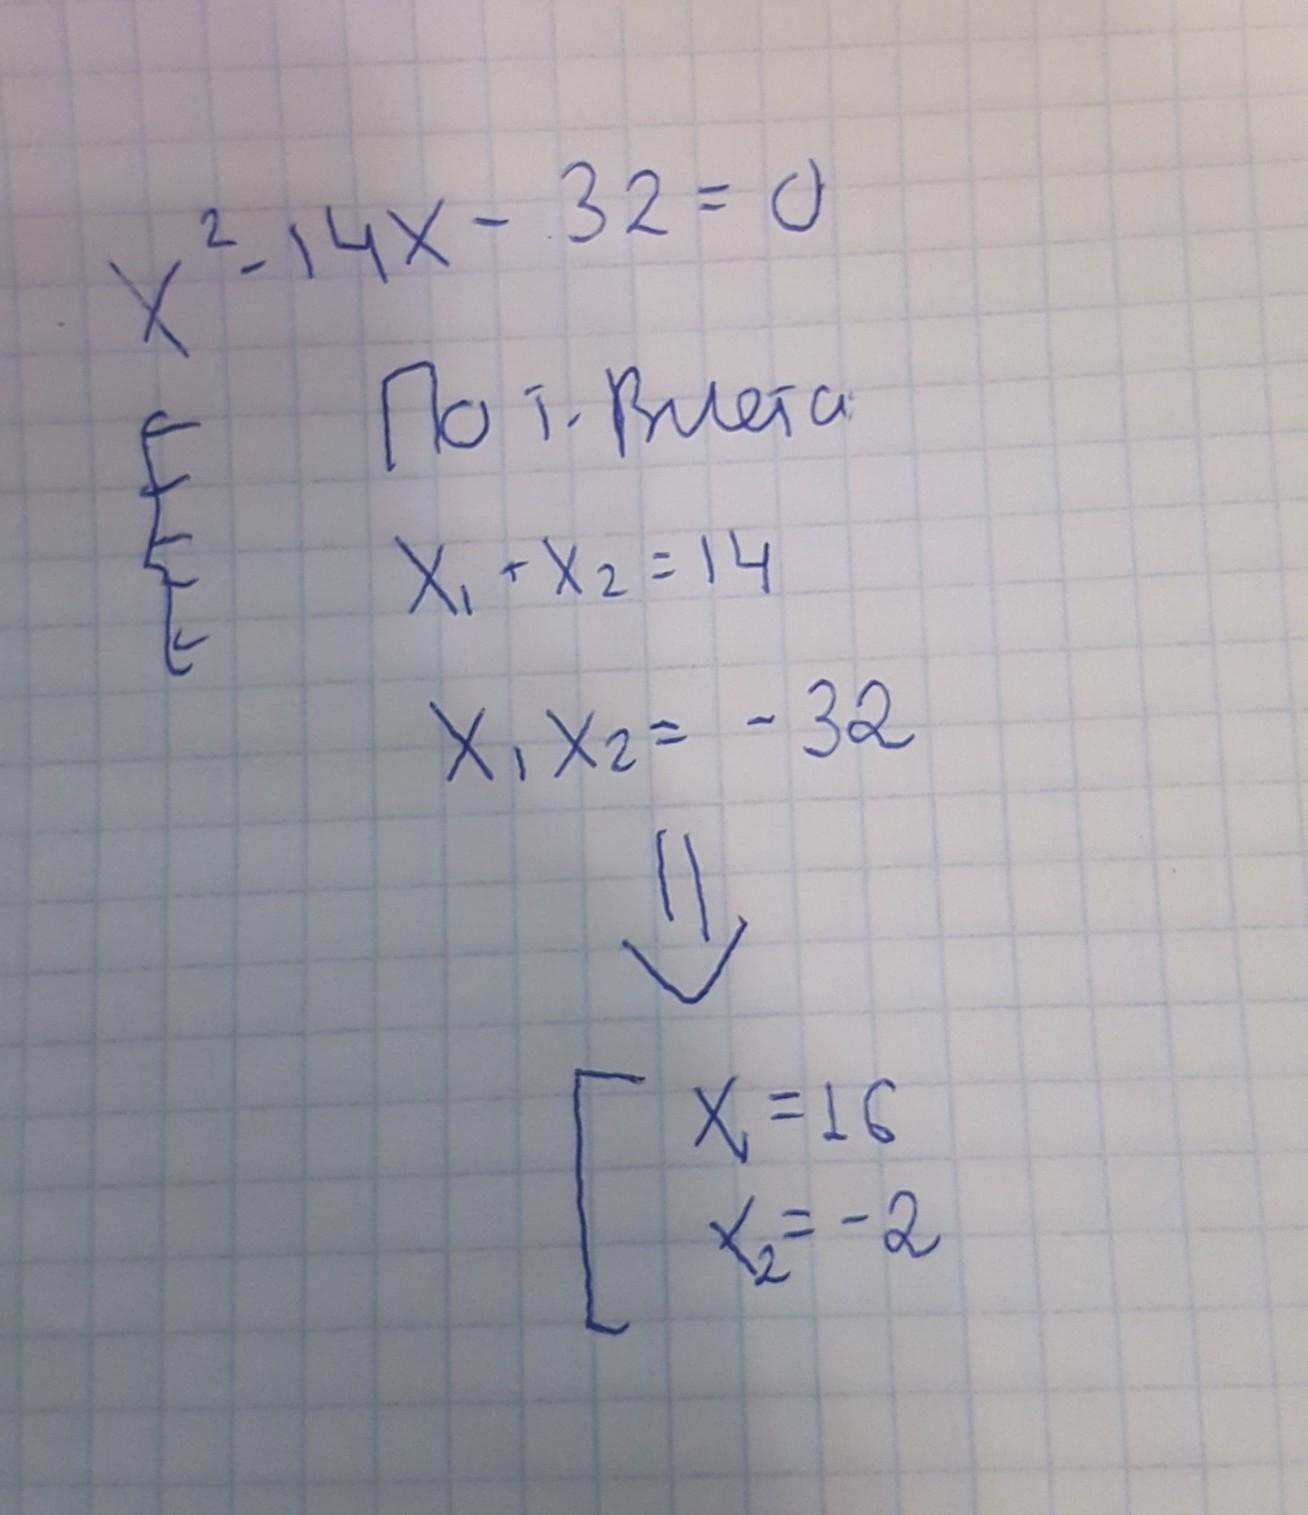 x² - 14x - 32 = 0
По т. Виета
x₁ + x₂ = 14
x₁ x₂ = - 32
⇓
x₁ = 16
x₂ = - 2